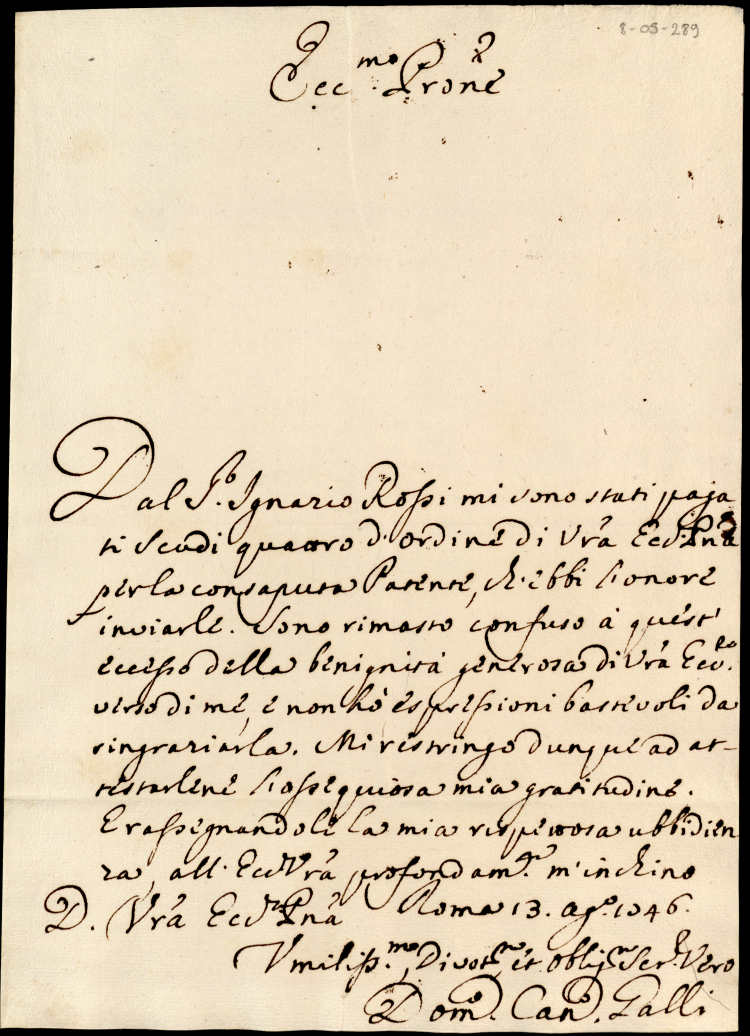 8-05-289
Ecc.mo Prone
Dal P. Ignazio Rossi mi sono stati paga
ti Scudi quattro d'ordine di Vrã Ecc.
per la consaputa Patente, ch'ebbi l'onore
inviarle. Sono rimasto confuso à quest'
eccesso della benignità generosa di Vrã Ecc.
verso di mè, e non hò espressioni bastevoli da
ringraziarla. Mi restringo dunque ad at-
testarlene l'ossequiosa mia gratitudine.
E rassegnandole la mia rispettosa ubbidien
za, all'Ecc. Vrã profondam.te m'inchino
D. Vrã Ecc. Pnã Roma 13. ag.o 1746.
Umiliss.mo, Divot.mo et Oblig.mo Ser. Vero
Dom.co Can.co Galli